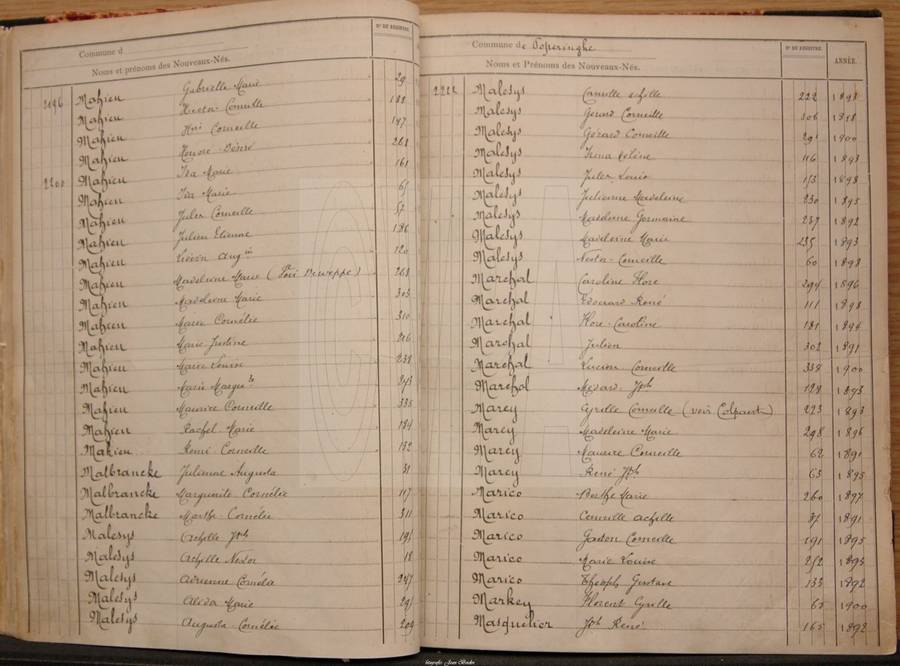 Commune d
Noms et prénoms des Nouveaux-Nés.
N° DU REGISTRE.
2196 Mahieu Gabrielle Marie 29
Mahieu Hector Camille 188
Mahieu Corneille 147
Mahieu Honoré Désiré 261
Mahieu Ida Marie 161
2200 Mahieu Ida Marie 65
Mahieu Jules Corneille 52
Mahieu Julien Etienne 186
Mahieu 120
Mahieu Madeleine Marie (Voir Deweppe) 263
Mahieu Madeleine Marie 303
Mahieu Maria Cornélie 310
Mahieu Marie Justine 206
Mahieu Marie Louise 238
Mahieu Marie Margute 243
Mahieu Maurice Corneille 335
Mahieu Rachel Marie 184
Mahieu Remi Corneille 132
Malbrancke Julienne Augusta 31
Malbrancke Marguerite Cornélie 117
Malbrancke Marthe Cornélie 311
Malesys Achille Jph 191
Malesys Achille Nestor 18
Malesys Adrienne Cornélie 247
Malesys Alida Marie 291
Malesys Augusta Cornélie 209
Commune de Poperinghe
Noms et Prénoms des Nouveaux-Nés.
N° DU REGISTRE.
ANNÉE.
2222 Malesys Camille Achille 222 1898
Malesys Gerard Corneille 306 1898
Malesys Gérard Corneille 291 1900
Malesys Irma Hélène 116 1893
Malesys Jules Louis 153 1898
Malesys Julienne Madeleine 230 1895
Malesys Madeleine Germaine 237 1892
Malesys Madeleine Marie 235 1893
Malesys Nestor Corneille 60 1893
Marchal Caroline Flore 294 1896
Marchal Edouard René 111 1898
Marchal Flore Caroline 181 1894
Marchal Julien 302 1891
Marchal Lucien Corneille 338 1900
Marchal Medard Jph 128 1893
Marey Cyrille Camille (voir Colpaert) 223 1893
Marey Madeleine Marie 298 1896
Marey Maurice Corneille 62 1891
Marey René Jph 65 1895
Marico Berthe Marie 260 1897
Marico Camille Achille 87 1891
Marico Gaston Corneille 191 1895
Marico Marie Louise 252 1893
Marico Théoph Gustave 133 1892
Markey Florent Cyrille 65 1900
Masquelier Jph René 165 1892